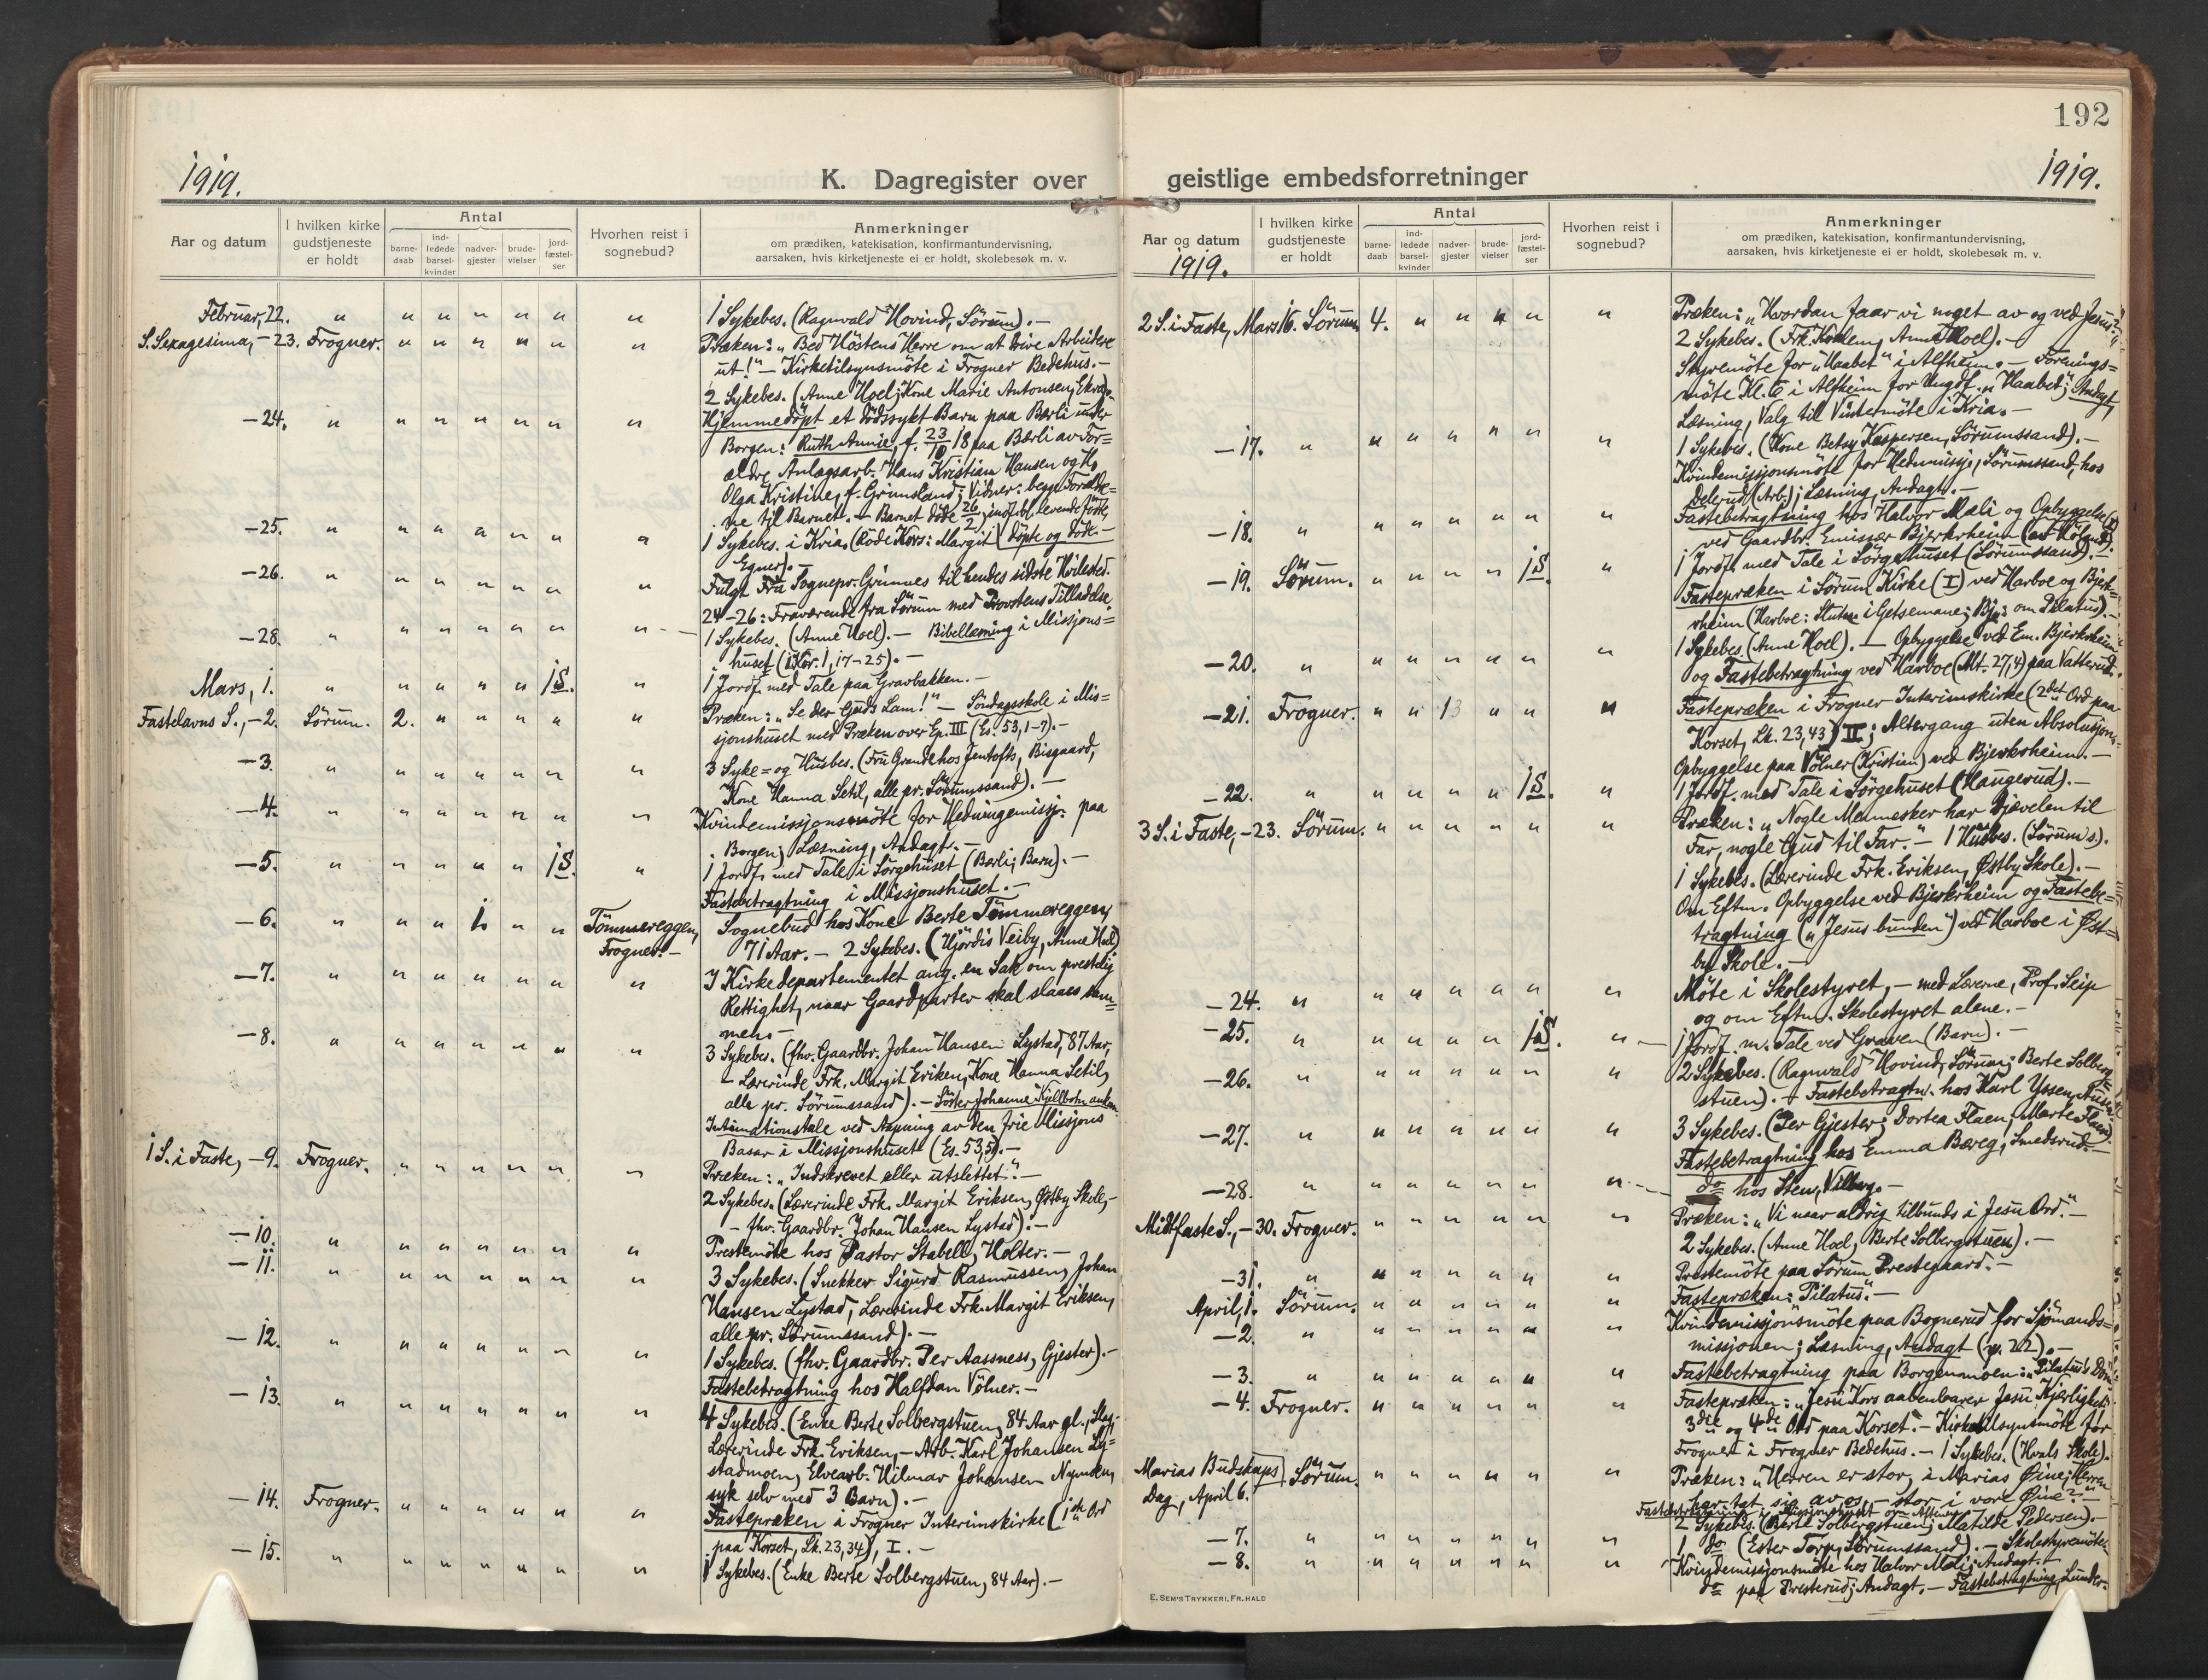 192
1919.
K. Dagregister over geistlige embedsforretninger
1919.
Aar og datum
I hvilken kirke gudstjeneste er holdt
Antal
barne-daab
ind-ledede barsel-kvinder
nadver-gjester
brude-vielser
jord-fæstel-ser
Hvorhen reist i sognebud?
Anmerkninger
om prædiken, katekisation, konfirmantundervisning,
aarsaken, hvis kirketjeneste ei er holdt, skolebesøk m. v.
Februar, 22. " " " " " " " 1 Sykebes. (Ragnvald Hovind, Sörum). —
S. Sexagesima, — 23. Frogner. " " " " " " Præken: „Bed Höstens Herre om at drive Arbeidere
ut!" — Kirketilsynsmöte i Frogner Bedehus. —
2 Sykebes. (Anne Hoel; Kone Marie Antonsen,
— 24. " " " " " " " Hjemmedöpt et dödssykt Barn paa Bærli under
Borgen: Ruth Annie, f. 23/10 18 paa Bærli av For=
ældre Anlægsarb. Hans Kristian Hansen og H.
Olga Kristine, f. Grimsland; Vidner: begge Foreldre=
ne til Barnet. — Barnet döde 26/2; indf. bl. levende födte,
— 25. " " " " " " " 1 Sykebes. i Kria. (Röde Kors: Margit döpte og döde. —
Egner). —
— 26. " " " " " " " Fulgt Fru Sognepr. Grimnes til hendes sidste Hvilested.
24–26: Fraværende fra Sörum med Provstens Tilladelse.
— 28. " " " " " " " 1 Sykebes. (Anne Hoel). — Bibellæsning i Missjons=
huset (1 Kor. 1, 17–25). —
Mars, 1. " " " " " 1 S. " 1 Jordf. med Tale paa Gravbakken. —
Fastelavns S., — 2. Sörum. 2. " " " " " Præken: „Se der Guds Lam!" — Söndagsskole i Mis=
sjonshuset med Præken over Ep. III (Es. 53, 1–7). —
— 3. " " " " " " " 3 Syke= og Husbes. (Fru Grande hos Jentofts, Bisgaard,
Kone Hanna Setil, alle pr. Sörumssand). —
— 4. " " " " " " " Kvindemissjonsmöte for Hedningemissj. paa
Borgen; Læsning, Andagt. —
— 5. " " " " " 1 S. " 1 Jordf. med Tale i Sörgehuset (Bærli; Barn). —
Fastebetragtning i Missjonshuset. —
— 6. " " " 1. " " Tömmereggen, Frogner. — Sognebud hos Kone Berte Tömmereggen,
71 Aar. — 2 Sykebes. (Hjördis Veiby, Anne Hoel)
— 7. " " " " " " " I Kirkedepartementet ang. en Sak om prestelig
Rettighet, naar Gaardparter skal slaaes sam=
men. —
— 8. " " " " " " " 3 Sykebes. (fhv. Gaardbr. Johan Hansen Lystad, 87 Aar,
— Lærerinde Frk. Margit Eriken, Kone Hanna Setil,
alle pr. Sörumssand). — Söster Johanne Kjellbotn ankom.
Intimationstale ved Aapning av den frie Missjons
Basar i Missjonshuset (Es. 53,5). —
1 S. i Faste, — 9. Frogner. " " " " " " Præken: „Indskrevet eller utslettet". —
2 Sykebes. (Lærerinde Frk. Margit Eriksen, Østby Skole, —
— fhv. Gaardbr. Johan Hansen Lystad). —
— 10. " " " " " " " Prestemöte hos Pastor Stabell, Holter. —
— 11. " " " " " " " 3 Sykebes. (Snekker Sigurd Rasmussen, Johan
Hansen Lystad, Lærerinde Frk. Margit Eriksen,
alle pr. Sörumssand). —
— 12. " " " " " " " 1 Sykebes. (fhv. Gaardbr. Per Aassness, Gjester). —
Fastebetragtning hos Halfdan Völner. —
— 13. " " " " " " " 4 Sykebes. (Enke Berte Solbergstuen, 84 Aar gl.,
Lærerinde Frk. Eriksen, — Arb. Karl Johansen Ly=
stadmoen, Elvearb. Hilmar Johansen Nymoen,
syk selv med 3 Barn). —
— 14. Frogner. " " " " " " Fastepræken i Frogner Interimskirke (1ste Ord
paa Korset, Lk. 23, 34), I. —
— 15. " " " " " " " 1 Sykebes. (Enke Berte Solbergstuen, 84 Aar). —
Aar og datum
1919.
I hvilken kirke gudstjeneste er holdt
Antal
barne-daab
ind-ledede barsel-kvinder
nadver-gjester
brude-vielser
jord-fæstel-ser
Hvorhen reist i sognebud?
Anmerkninger
om prædiken, katekisation, konfirmantundervisning,
aarsaken, hvis kirketjeneste ei er holdt, skolebesøk m. v.
2 S. i Faste, Mars 16. Sörum. 4. " " " " " Præken: „Hvordan faar vi noget av og ved Jesus?"
2 Sykebes. (Frk. Anne Hoel). —
Styremöte for „Haabet" i Alfheim. — Forenings=
möte Kl. 6 i Alfheim for Ungdf. „Haabet"; Andagt,
Læsning, Valg til Vintermöte i Kria. —
— 17. " " " " " " " 1 Sykebes. (Kone Betsy Kaspersen, Sörumssand). —
Kvindemissjonsmöte for Hedmissj., Sörumssand, hos
Delerud (Arb.); Læsning, Andagt. —
— 18. " " " " " " " Fastebetragtning hos Halvor Mæli og Opbyggelse (I)
ved Gaardbr. Emissær Bjerkrheim
— 19. Sörum. " " " " 1 S. " 1 Jordf. med Tale i Sörgehuset (Sörumssand). —
Fastepræken i Sörum Kirke (I) ved Harboe og Bjerk=
rheim (Harboe: i Getsemane; Bj.: om Pilatus). —
— 20. " " " " " " " 1 Sykebes. (Anne Hoel). — Opbyggelse ved Em. Bjerkrheim
og Fastebetragtning ved Harboe (Mt. 27,4) paa Vatterud.
— 21. Frogner. " " 13 " " " Fastepræken i Frogner Interimskirke (2det Ord paa
Korset, Lk. 23, 43) II; Altergang uten Absolusjon. —
Opbyggelse paa Völner (Kristian) ved Bjerkrheim. —
— 22. " " " " " 1 S. " 1 Jordf. med Tale i Sörgehuset (Haugerud). —
3 S. i Faste, — 23. Sörum. " " " " " " Præken: „Nogle Mennesker har Djævelen til
Far, nogle Gud til Far." — 1 Husbes. (Sörums.).
1 Sykebes. (Lærerinde Frk. Eriksen, Østby Skole). —
Om Eftm. Opbyggelse ved Bjerkrheim og Fastebe=
tragtning („Jesus bunden") ved Harboe i Øst=
by Skole. —
— 24. " " " " " " " Möte i Skolestyret, — med Lærerne, Prof. Seip
og om Eftm. Skolestyret alene. —
— 25. " " " " " 1 S. " 1 Jordf. m. Tale ved Graven (Barn). —
— 26. " " " " " " " 2 Sykebes. (Ragnvald Hovind, Sörum; Berte Solberg=
stuen). — Fastebetragtn. hos Karl Yssen,
— 27. " " " " " " " 3 Sykebes. (Per Gjester; Dortea Flaen, Marte Flaen).
Fastebetragtning hos Emma Bæreg, Smedsrud. —
— 28. " " " " " " " do hos Sten, Vilberg. —
Midtfaste S., — 30. Frogner. " " " " " " Præken: „Vi naar aldrig tilbunds i Jesu Ord." —
2 Sykebes. (Anne Hoel, Berte Solbergstuen). —
— 31. " " " " " " " Prestemöte paa Sörum Prestegaard. —
April, 1. Sörum. " " " " " " Fastepræken: „Pilatus". —
— 2. " " " " " " " Kvindemissjonsmöte paa Bognerud for Sjömands=
missjonen; Læsning, Andagt
— 3. " " " " " " " Fastebetragtning paa Borgenmoen: „Pilatus's Dom"
— 4. Frogner. " " " " " " Fastepræken: „Jesu Kors aabenbarer Jesu Kjærlighet;
3die og 4de Ord paa Korset. — Kirketilsynsmöte for
Frogner i Frogner Bedehus. — 1 Sykebes. (Hvals Skole).
Marias Budskaps Dag, April 6. Sörum. " " " " " " Præken: „Herren er stor, i Marias Øine; Herren
har tat sig av os, — stor i vore Øine?" —
Fastebetragtning i Missjonshuset om Aftenen
— 7. " " " " " " " 2 Sykebes. (Berte Solbergstuen; Matilde Pedersen). —
1 do (Ester Torp, Sörumssand). — Skolestyremöte.
— 8. " " " " " " " Kvindemissjonsmöte hos Halvor Mæli; Andagt. —
do paa Presterud; Andagt. — Fastebetragtning
E. SEM'S TRYKKERI, FR.HALD